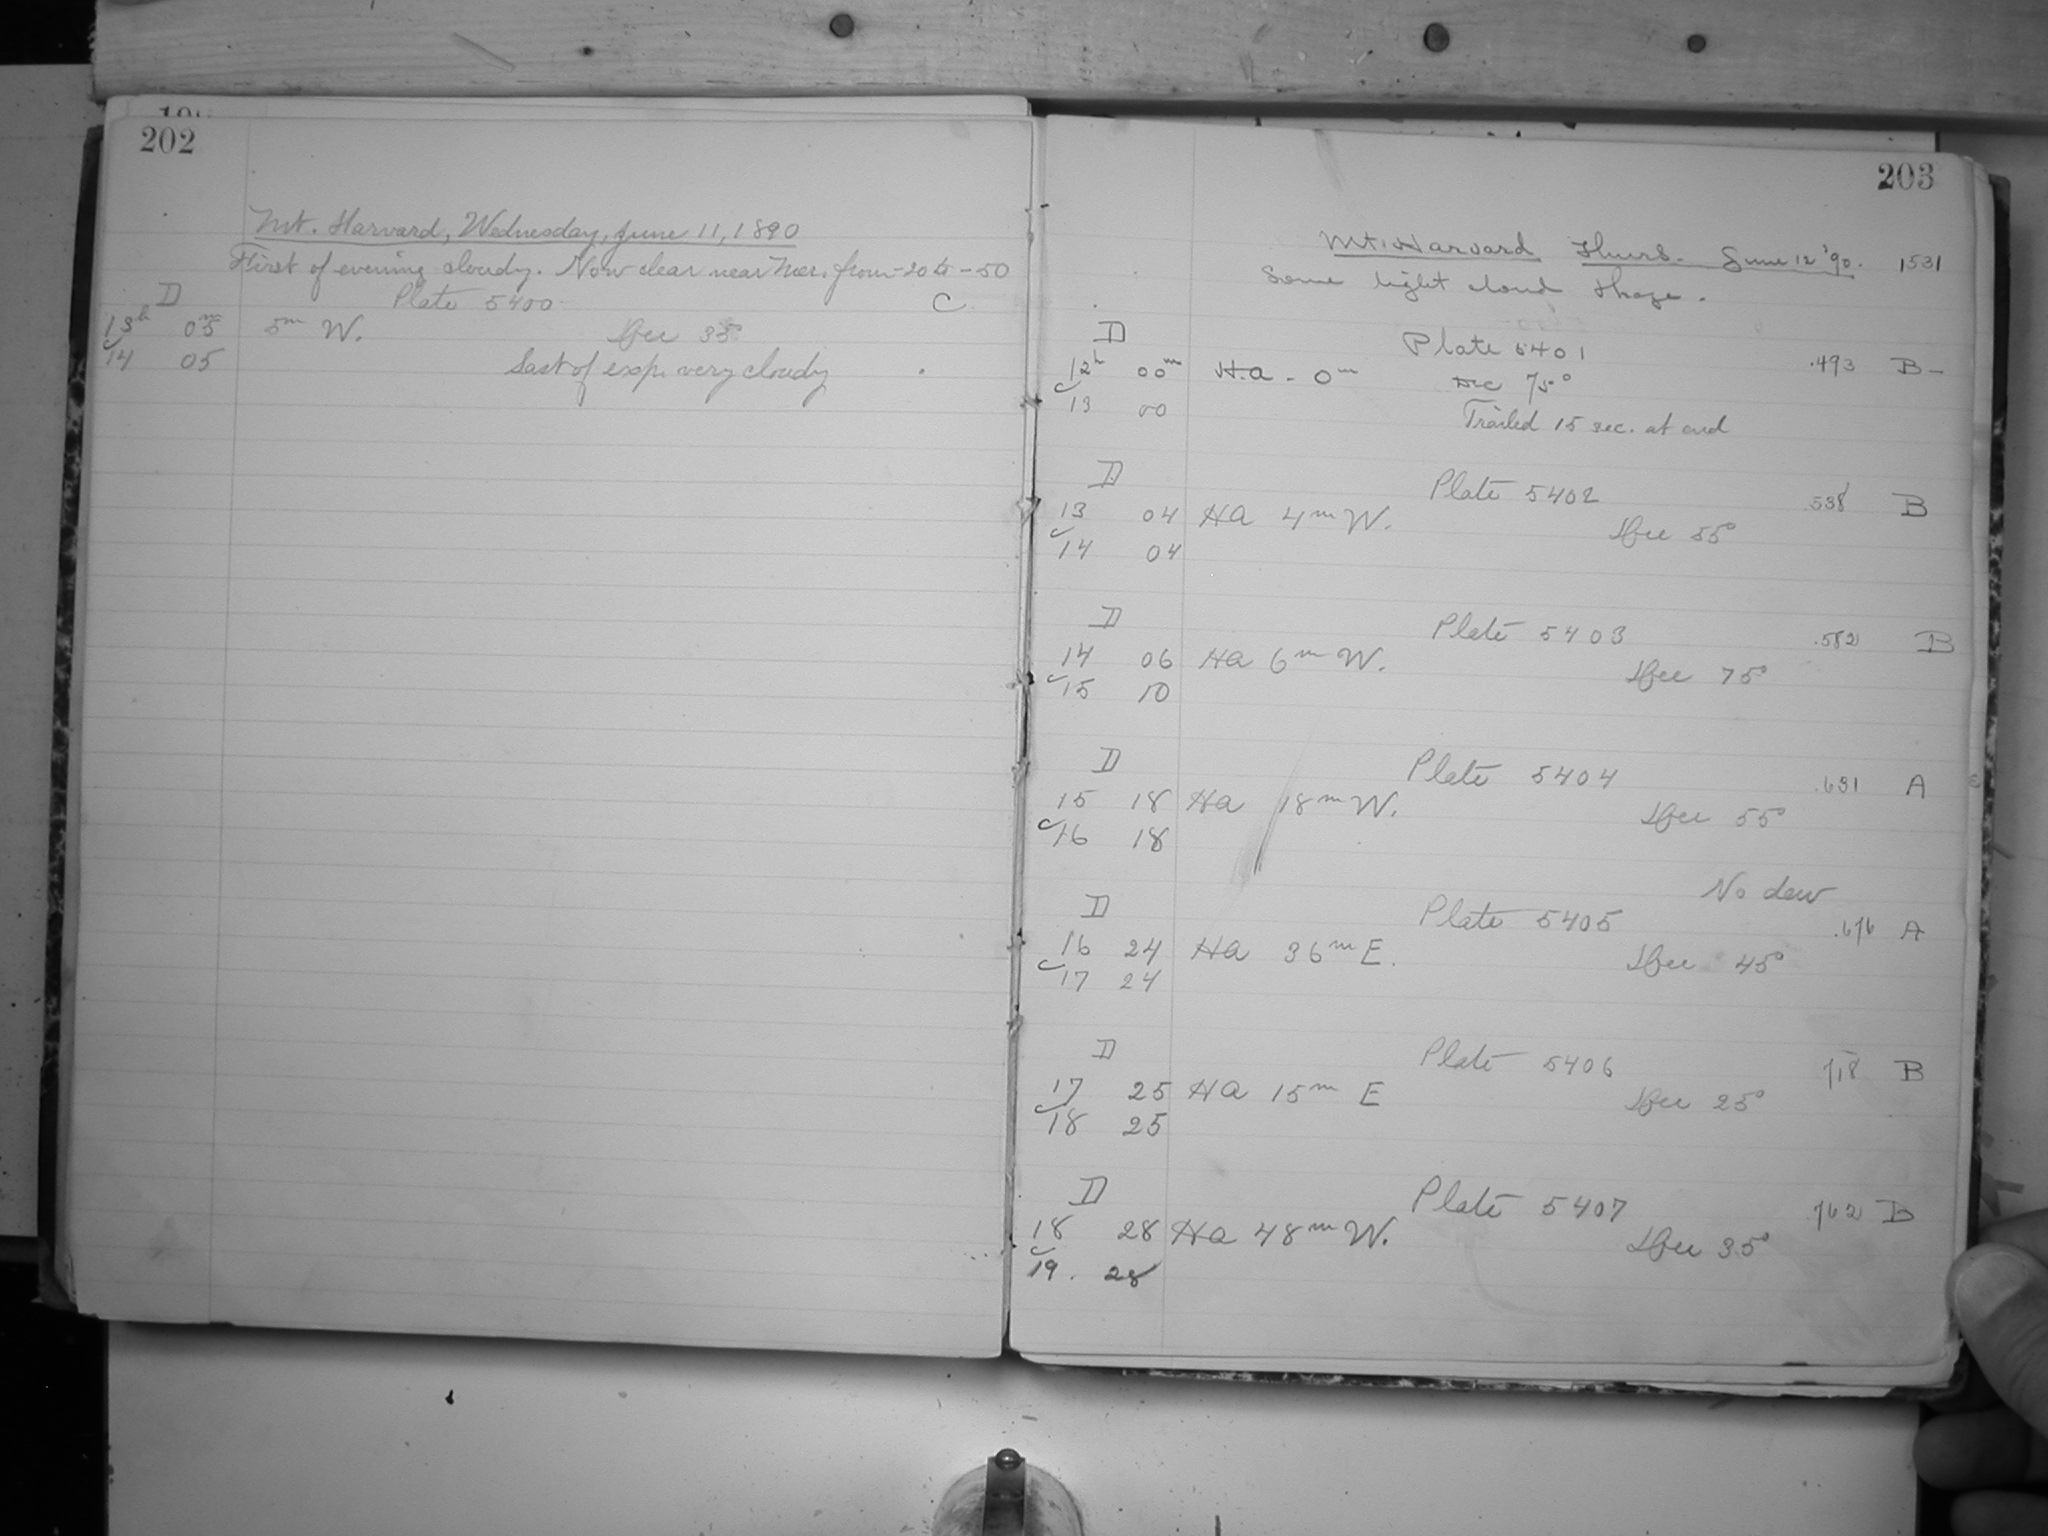 202
Mt. Harvard, Wednesday, June 11, 1890
First of evening cloudy. Now clear near Mer. from -20 to -50
D Plate 5400 C
13h 05m 5m W. Dec 35°
14 05 Last of exp. very cloudy
203
Mt. Harvard Thurs. June 12 '90. 1531
Some light cloud & haze.
D Plate 5401 .493 B-
12h 00m H.a - 0m Dec 75°
13 00 Trailed 15 sec. at end
D Plate 5402 .538 B
13 04 Ha 4m W. Dec 55°
14 04
D Plate 5403 .582 B
14 06 Ha 6m W. Dec 75°
15 10
D Plate 5404 .631 A
15 18 Ha 18m W. Dec 55°
16 18
No dew
D Plate 5405 .676 A
16 24 Ha 36m E. Dec 45°
17 24
D Plate 5406 .718 B
17 25 Ha 15m E Dec 25°
18 25
D Plate 5407 .762 B
18 28 Ha 48m W. Dec 35°
19. 28